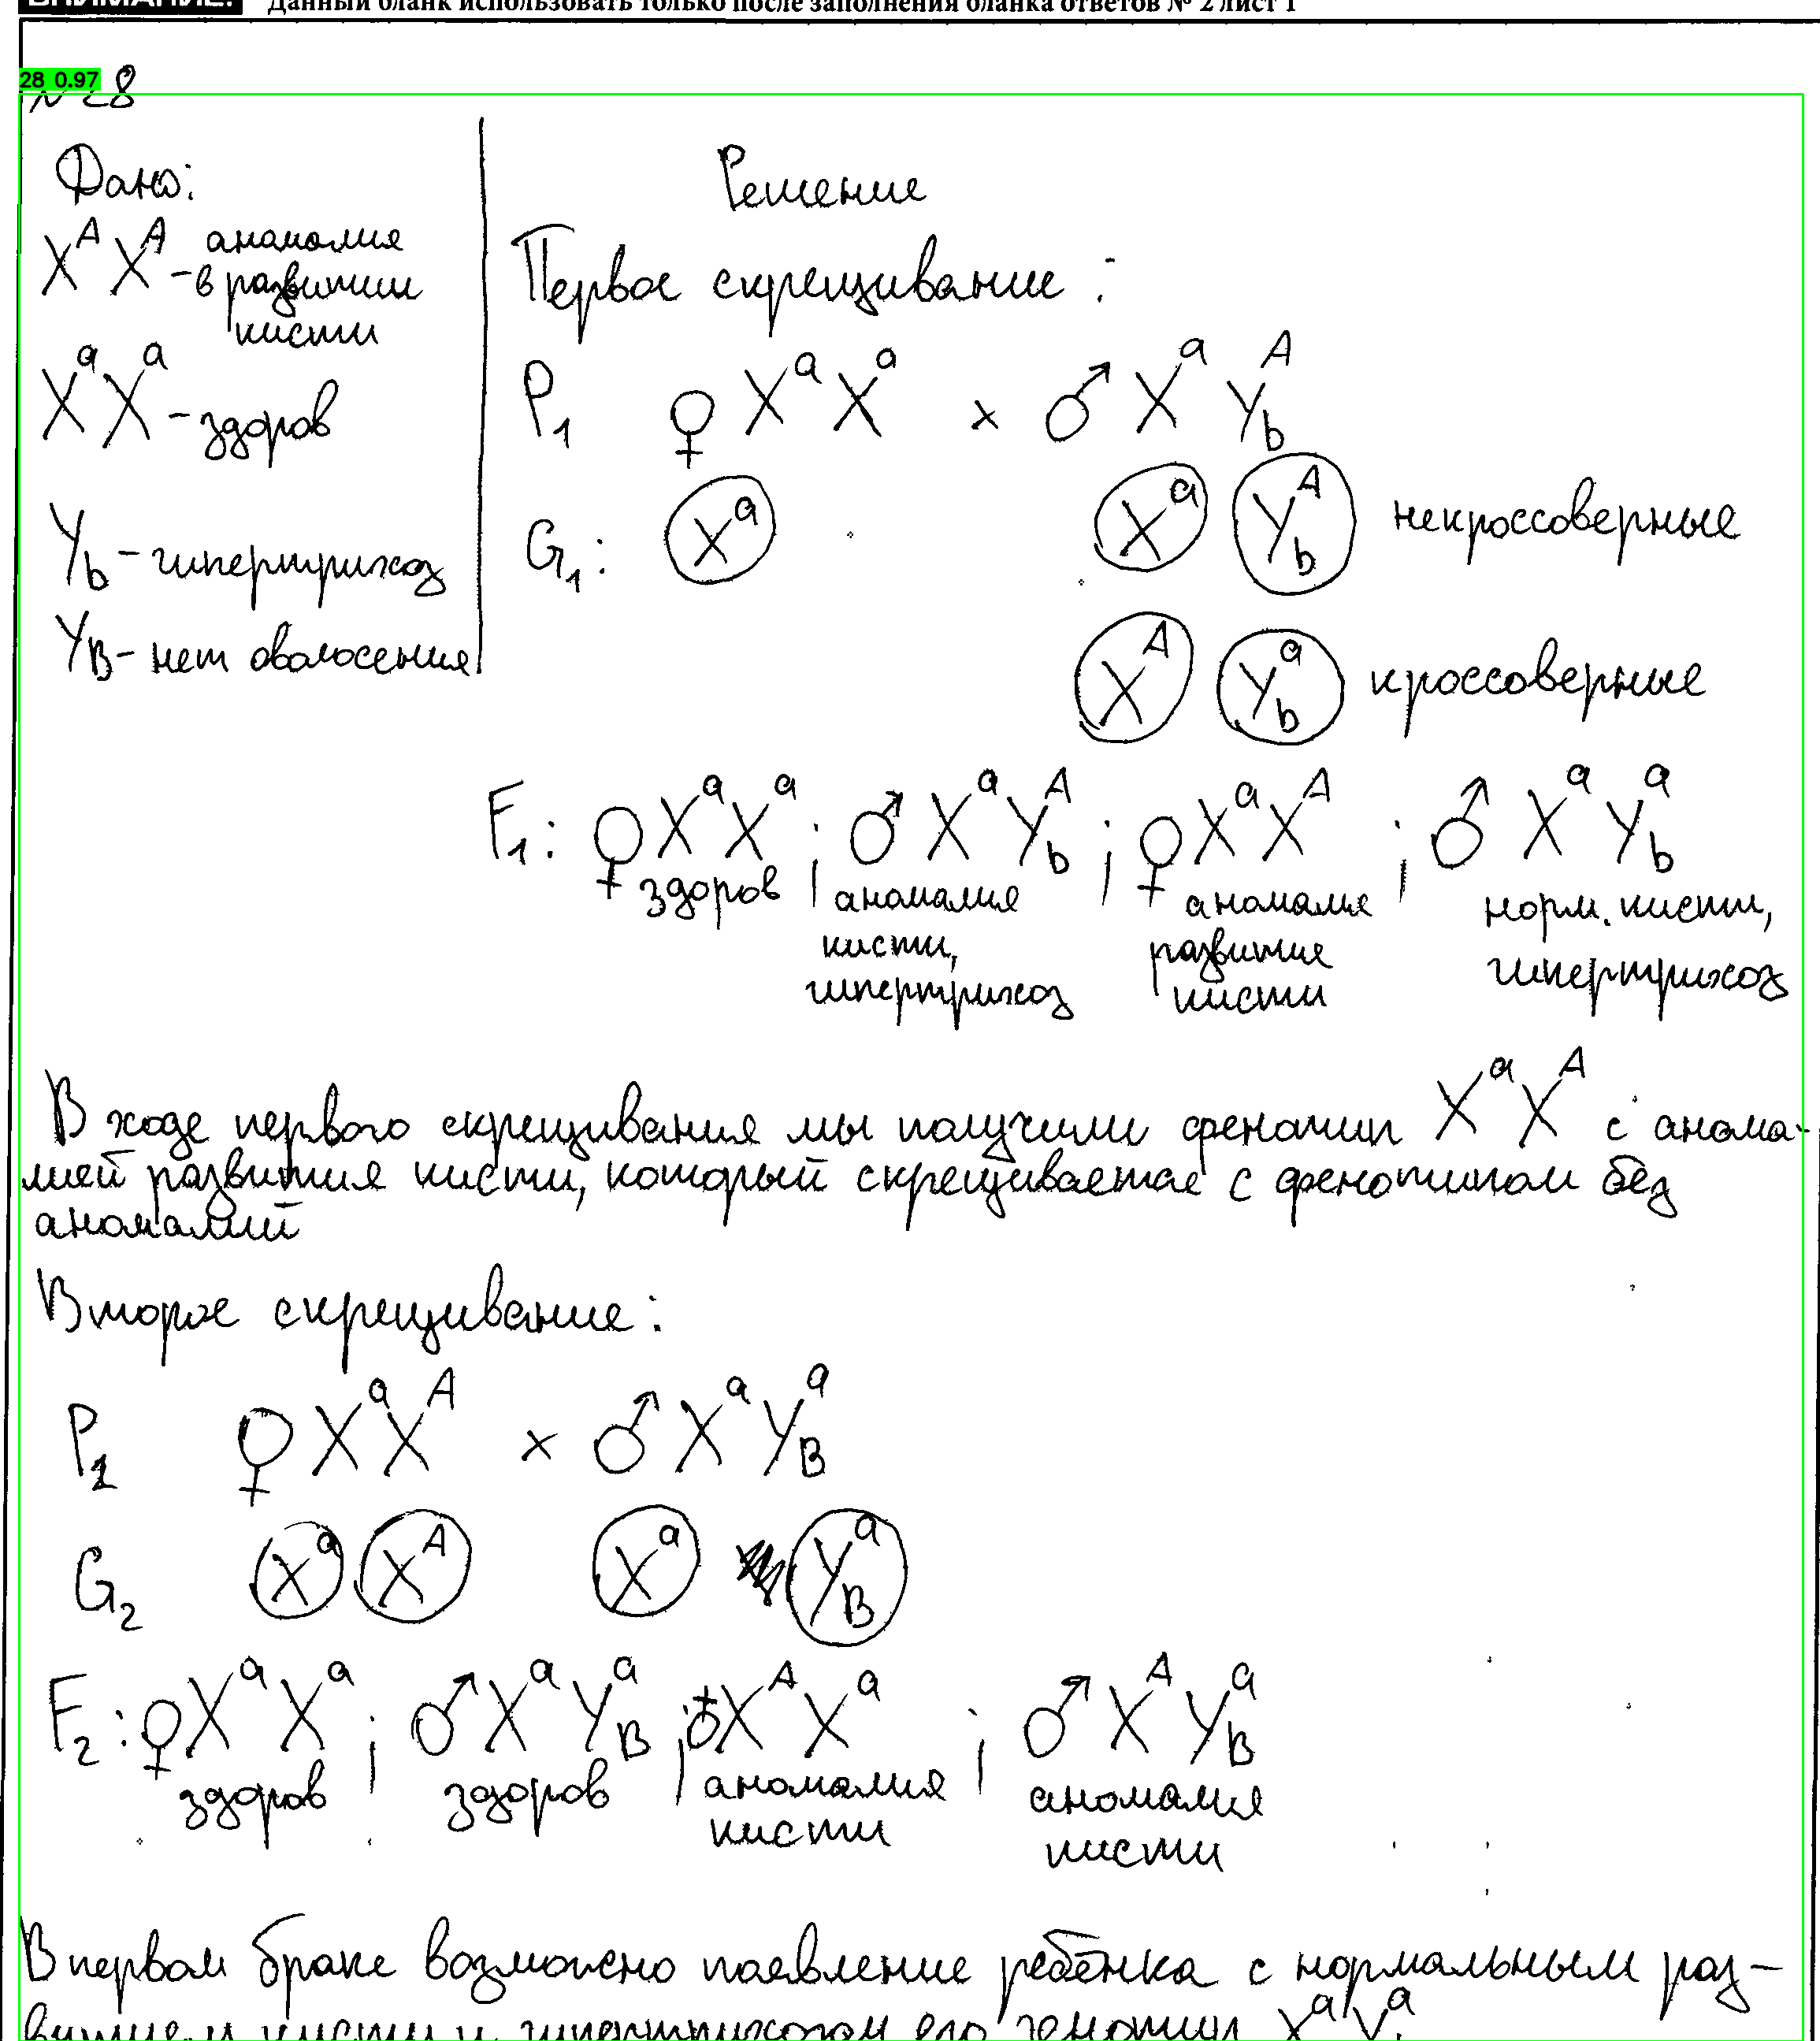 ВНИМАНИЕ! Данный бланк использовать только после заполнения бланка ответов № 2 лист 1
28 0.97
№ 28
Дано:
X^A X^A - аномалия в развитии кисти
X^a X^a - здоров
Y_b - гипертрихоз
Y_B - нет оволосения
Решение
Первое скрещивание:
P_1 ♀ X^a X^a × ♂ X^a Y_b^A
G_1: X^a X^a Y_b^A некроссоверные
X^A Y_b^a кроссоверные
F_1: ♀ X^a X^a ; ♂ X^a Y_b^A ; ♀ X^a X^A ; ♂ X^a Y_b^a
здоров | аномалия кисти, гипертрихоз | аномалия развитие кисти | норм. кисти, гипертрихоз
В ходе первого скрещивания мы получили фенотип X^a X^A с анома-
лией развития кисти, который скрещивается с фенотипом без
аномалий
Второе скрещивание:
P_2 ♀ X^a X^A × ♂ X^a Y_B^a
G_2 X^a X^A X^a Y_B^a
F_2: ♀ X^a X^a ; ♂ X^a Y_B^a ; ♀ X^A X^a ; ♂ X^A Y_B^a
здоров ; здоров ; аномалия кисти ; аномалия кисти
В первом браке возможно появление ребёнка с нормальным раз-
витием кисти и гипертрихозом его генотип X^a Y^a